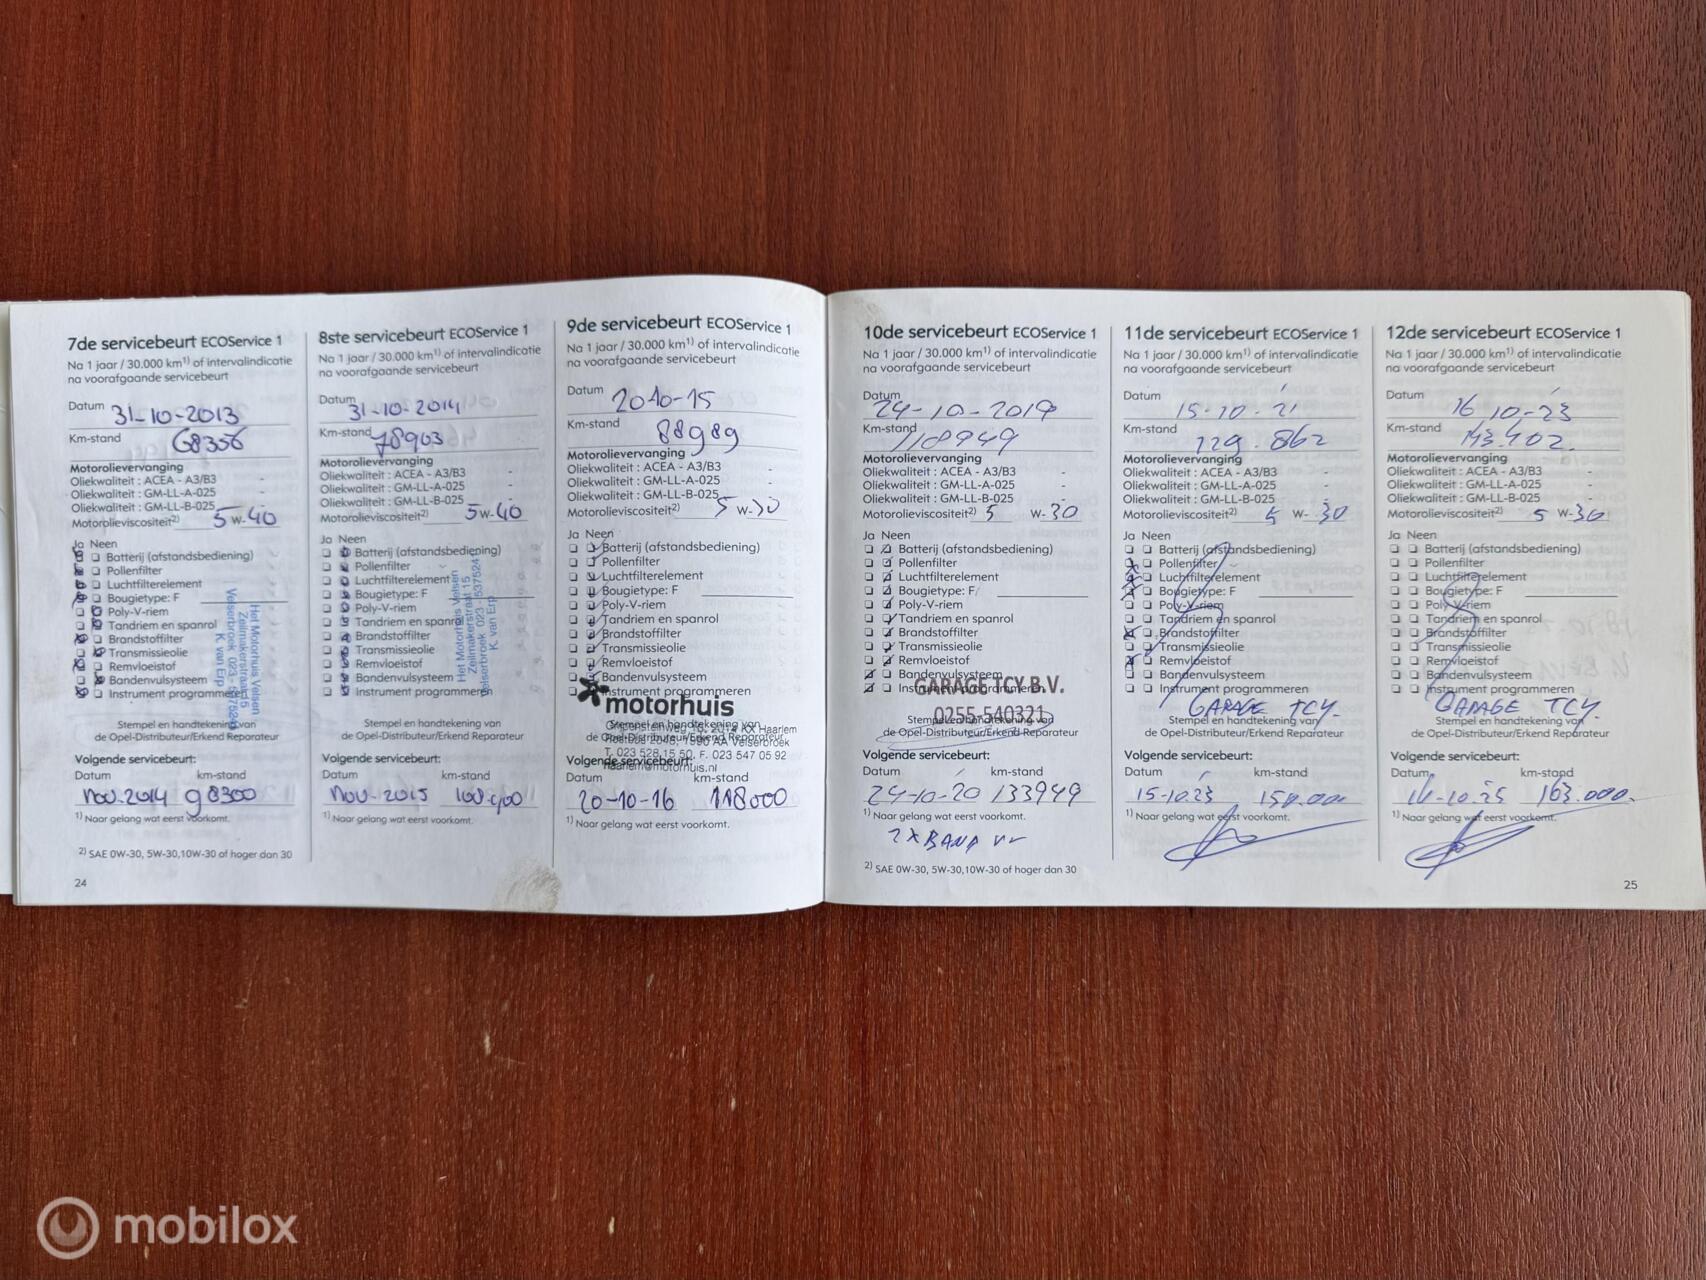 7de servicebeurt ECOService 1
Na 1 jaar / 30.000 km¹⁾ of intervalindicatie
na voorafgaande servicebeurt
Datum 31-10-2013
Km-stand 68356
Motorolievervanging
Oliekwaliteit : ACEA - A3/B3 -
Oliekwaliteit : GM-LL-A-025 -
Oliekwaliteit : GM-LL-B-025 -
Motorolieviscositeit²⁾ 5 W-40
Ja Neen
Batterij (afstandsbediening)
Pollenfilter
Luchtfilterelement
Bougietype: F
Poly-V-riem
Tandriem en spanrol
Brandstoffilter
Transmissieolie
Remvloeistof
Bandenvulsysteem
Instrument programmeren
Het Motorhuis Velsen
Zeilmakerstraat 15
Velserbroek 023 - 537524
K. van Erp
Stempel en handtekening van
de Opel-Distributeur/Erkend Reparateur
Volgende servicebeurt:
Datum km-stand
nov. 2014 98300
¹⁾ Naar gelang wat eerst voorkomt.
²⁾ SAE 0W-30, 5W-30,10W-30 of hoger dan 30
24
8ste servicebeurt ECOService 1
Na 1 jaar / 30.000 km¹⁾ of intervalindicatie
na voorafgaande servicebeurt
Datum 31-10-2014
Km-stand 78903
Motorolievervanging
Oliekwaliteit : ACEA - A3/B3 -
Oliekwaliteit : GM-LL-A-025 -
Oliekwaliteit : GM-LL-B-025 -
Motorolieviscositeit²⁾ 5 W-40
Ja Neen
Batterij (afstandsbediening)
Pollenfilter
Luchtfilterelement
Bougietype: F
Poly-V-riem
Tandriem en spanrol
Brandstoffilter
Transmissieolie
Remvloeistof
Bandenvulsysteem
Instrument programmeren
Het Motorhuis Velsen
Zeilmakerstraat 15
Velserbroek 023 - 537524
K. van Erp
Stempel en handtekening van
de Opel-Distributeur/Erkend Reparateur
Volgende servicebeurt:
Datum km-stand
nov. 2015
¹⁾ Naar gelang wat eerst voorkomt.
9de servicebeurt ECOService 1
Na 1 jaar / 30.000 km¹⁾ of intervalindicatie
na voorafgaande servicebeurt
Datum 2010-15
Km-stand 88989
Motorolievervanging
Oliekwaliteit : ACEA - A3/B3 -
Oliekwaliteit : GM-LL-A-025 -
Oliekwaliteit : GM-LL-B-025 -
Motorolieviscositeit²⁾ 5 W-30
Ja Neen
Batterij (afstandsbediening)
Pollenfilter
Luchtfilterelement
Bougietype: F
Poly-V-riem
Tandriem en spanrol
Brandstoffilter
Transmissieolie
Remvloeistof
Bandenvulsysteem
Instrument programmeren
motorhuis
Stempel en handtekening van
de Opel-Distributeur/Erkend Reparateur
T. 023 528 15 50, F. 023 547 05 92
haarlem@motorhuis.nl
Volgende servicebeurt:
Datum km-stand
20-10-16 118000
¹⁾ Naar gelang wat eerst voorkomt.
10de servicebeurt ECOService 1
Na 1 jaar / 30.000 km¹⁾ of intervalindicatie
na voorafgaande servicebeurt
Datum 24-10-2019
Km-stand 118949
Motorolievervanging
Oliekwaliteit : ACEA - A3/B3 -
Oliekwaliteit : GM-LL-A-025 -
Oliekwaliteit : GM-LL-B-025 -
Motorolieviscositeit²⁾ 5 W-30
Ja Neen
Batterij (afstandsbediening)
Pollenfilter
Luchtfilterelement
Bougietype: F
Poly-V-riem
Tandriem en spanrol
Brandstoffilter
Transmissieolie
Remvloeistof
Bandenvulsysteem
Instrument programmeren
GARAGE TCY B.V.
0255-540321
Stempel en handtekening van
de Opel-Distributeur/Erkend Reparateur
Volgende servicebeurt:
Datum km-stand
24-10-20 133949
¹⁾ Naar gelang wat eerst voorkomt.
2X BAND
²⁾ SAE 0W-30, 5W-30,10W-30 of hoger dan 30
11de servicebeurt ECOService 1
Na 1 jaar / 30.000 km¹⁾ of intervalindicatie
na voorafgaande servicebeurt
Datum 15-10-21
Km-stand 129.862
Motorolievervanging
Oliekwaliteit : ACEA - A3/B3 -
Oliekwaliteit : GM-LL-A-025 -
Oliekwaliteit : GM-LL-B-025 -
Motorolieviscositeit²⁾ 5 W-30
Ja Neen
Batterij (afstandsbediening)
Pollenfilter
Luchtfilterelement
Bougietype: F
Poly-V-riem
Tandriem en spanrol
Brandstoffilter
Transmissieolie
Remvloeistof
Bandenvulsysteem
Instrument programmeren
GARAGE TCY.
Stempel en handtekening van
de Opel-Distributeur/Erkend Reparateur
Volgende servicebeurt:
Datum km-stand
15-10.23
¹⁾ Naar gelang wat eerst voorkomt.
12de servicebeurt ECOService 1
Na 1 jaar / 30.000 km¹⁾ of intervalindicatie
na voorafgaande servicebeurt
Datum 16 10-23
Km-stand 143.402.
Motorolievervanging
Oliekwaliteit : ACEA - A3/B3 -
Oliekwaliteit : GM-LL-A-025 -
Oliekwaliteit : GM-LL-B-025 -
Motorolieviscositeit²⁾ 5 W-30
Ja Neen
Batterij (afstandsbediening)
Pollenfilter
Luchtfilterelement
Bougietype: F
Poly-V-riem
Tandriem en spanrol
Brandstoffilter
Transmissieolie
Remvloeistof
Bandenvulsysteem
Instrument programmeren
GARAGE TCY.
Stempel en handtekening van
de Opel-Distributeur/Erkend Reparateur
Volgende servicebeurt:
Datum km-stand
16-10.25 163.000.
¹⁾ Naar gelang wat eerst voorkomt.
25
mobilox